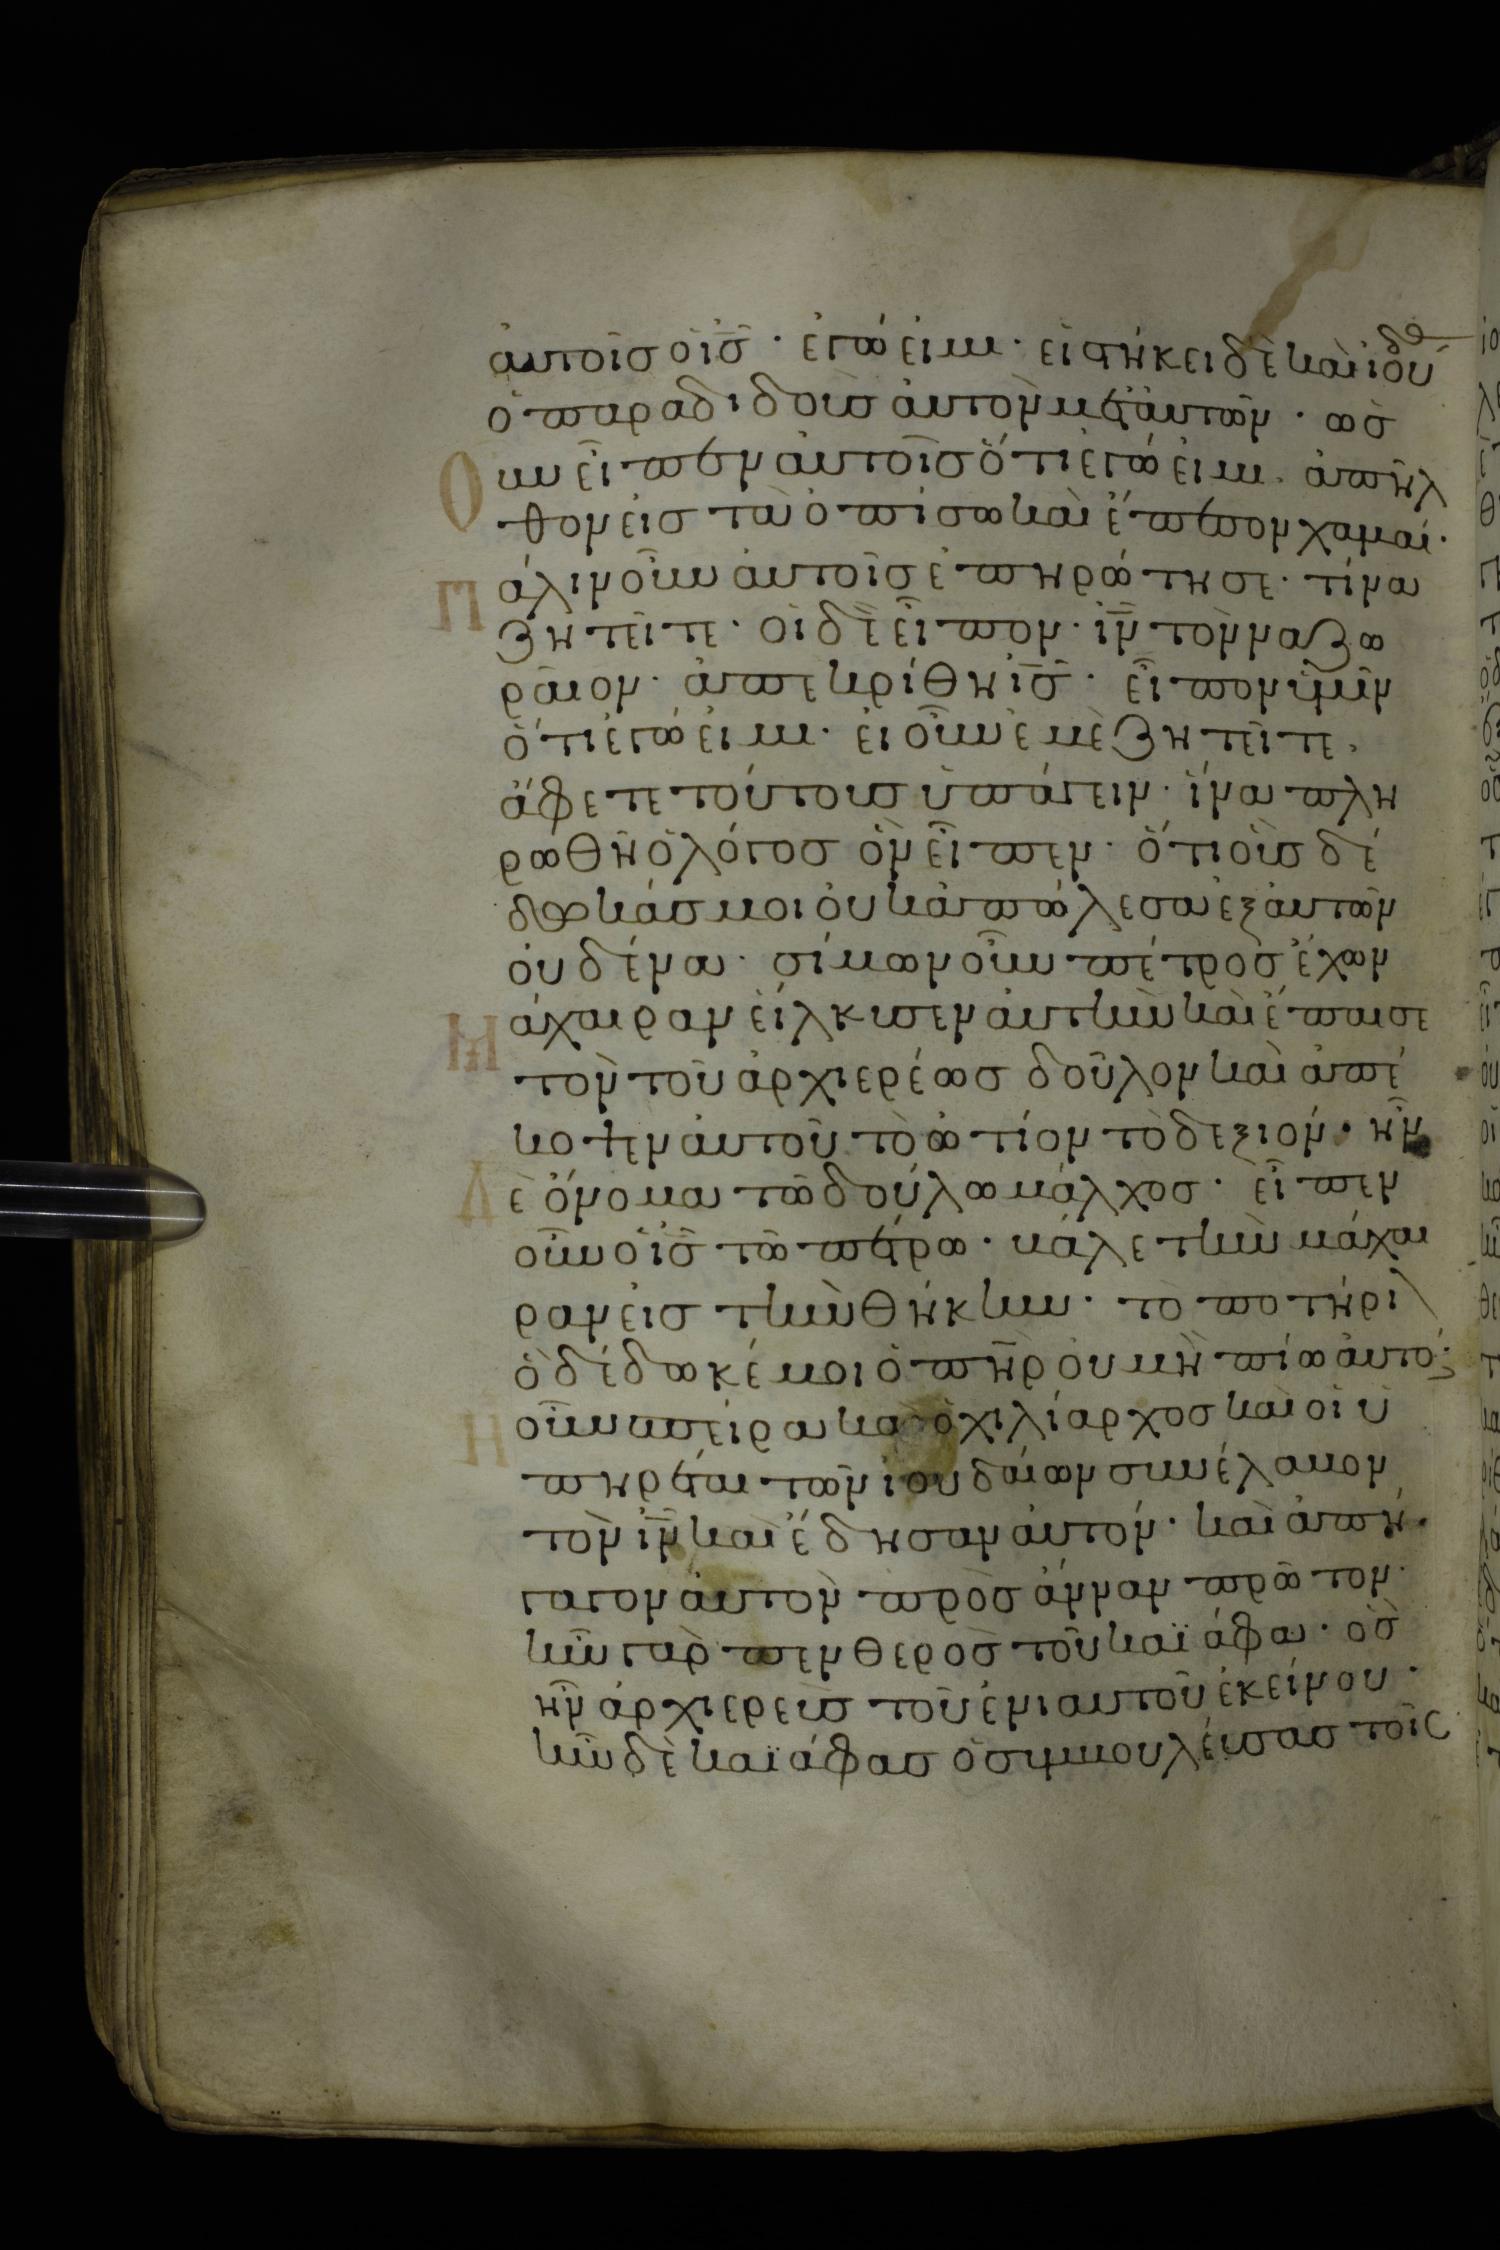 αὐτοῖς ὁ ἰ̅ς̅ · ἐγώ εἰμι · εἱστήκει δὲ καὶ ἰούδα
ὁ παραδιδοὺς αὐτὸν μετ' αὐτῶν · ὡς
Οὖν εἶπεν αὐτοῖς ὅτι ἐγώ εἰμι · ἀπῆλ
θον εἰς τὰ ὀπίσω καὶ ἔπεσον χαμαί ·
Πάλιν οὖν αὐτοῖς ἐπηρώτησε · τίνα
ζητεῖτε · οἱ δὲ εἶπον · ἰ̅ν̅ τὸν ναζω
ραῖον · ἀπεκρίθη ἰ̅ς̅ · εἶπον ὑμῖν
ὅτι ἐγώ εἰμι · εἰ οὖν ἐμὲ ζητεῖτε ·
ἄφετε τούτους ὑπάγειν · ἵνα πλη
ρωθῆ ὁ λόγος ὃν εἶπεν · ὅτι οὓς δέ
δωκάς μοι οὐκ ἀπώλεσα ἐξ αὐτῶν
οὐδένα · σίμων οὖν πέτρος ἔχων
Μάχαιραν εἵλκυσεν αὐτὴν καὶ ἔπαισε
τὸν τοῦ ἀρχιερέως δοῦλον καὶ ἀπέ
κοψεν αὐτοῦ τὸ ὠτίον τὸ δεξιόν · ἦν
Δὲ ὄνομα τῶ δούλω μάλχος · εἶπεν
οὖν ὁ ἰ̅ς̅ τῶ πέτρω · βάλε τὴν μάχαι
ραν εἰς τὴν θήκην · τὸ ποτήρι
ὃ δέδωκέ μοι ὁ π̅η̅ρ̅ οὐ μὴ πίω αὐτό ·
Ἡ οὖν σπεῖρα καὶ ὁ χιλίαρχος καὶ οἱ ὑ
πηρέται τῶν ἰουδαίων συνέλαβον
τὸν ἰ̅ν̅ καὶ ἔδησαν αὐτόν · καὶ ἀπή
γαγον αὐτὸν πρὸς ἄνναν πρῶτον ·
ἦν γὰρ πενθερὸς τοῦ καϊάφα · ὃς
ἦν ἀρχιερεὺς τοῦ ἐνιαυτοῦ ἐκείνου ·
ἦν δὲ καϊάφας ὁ συμβουλεύσας τοῖς